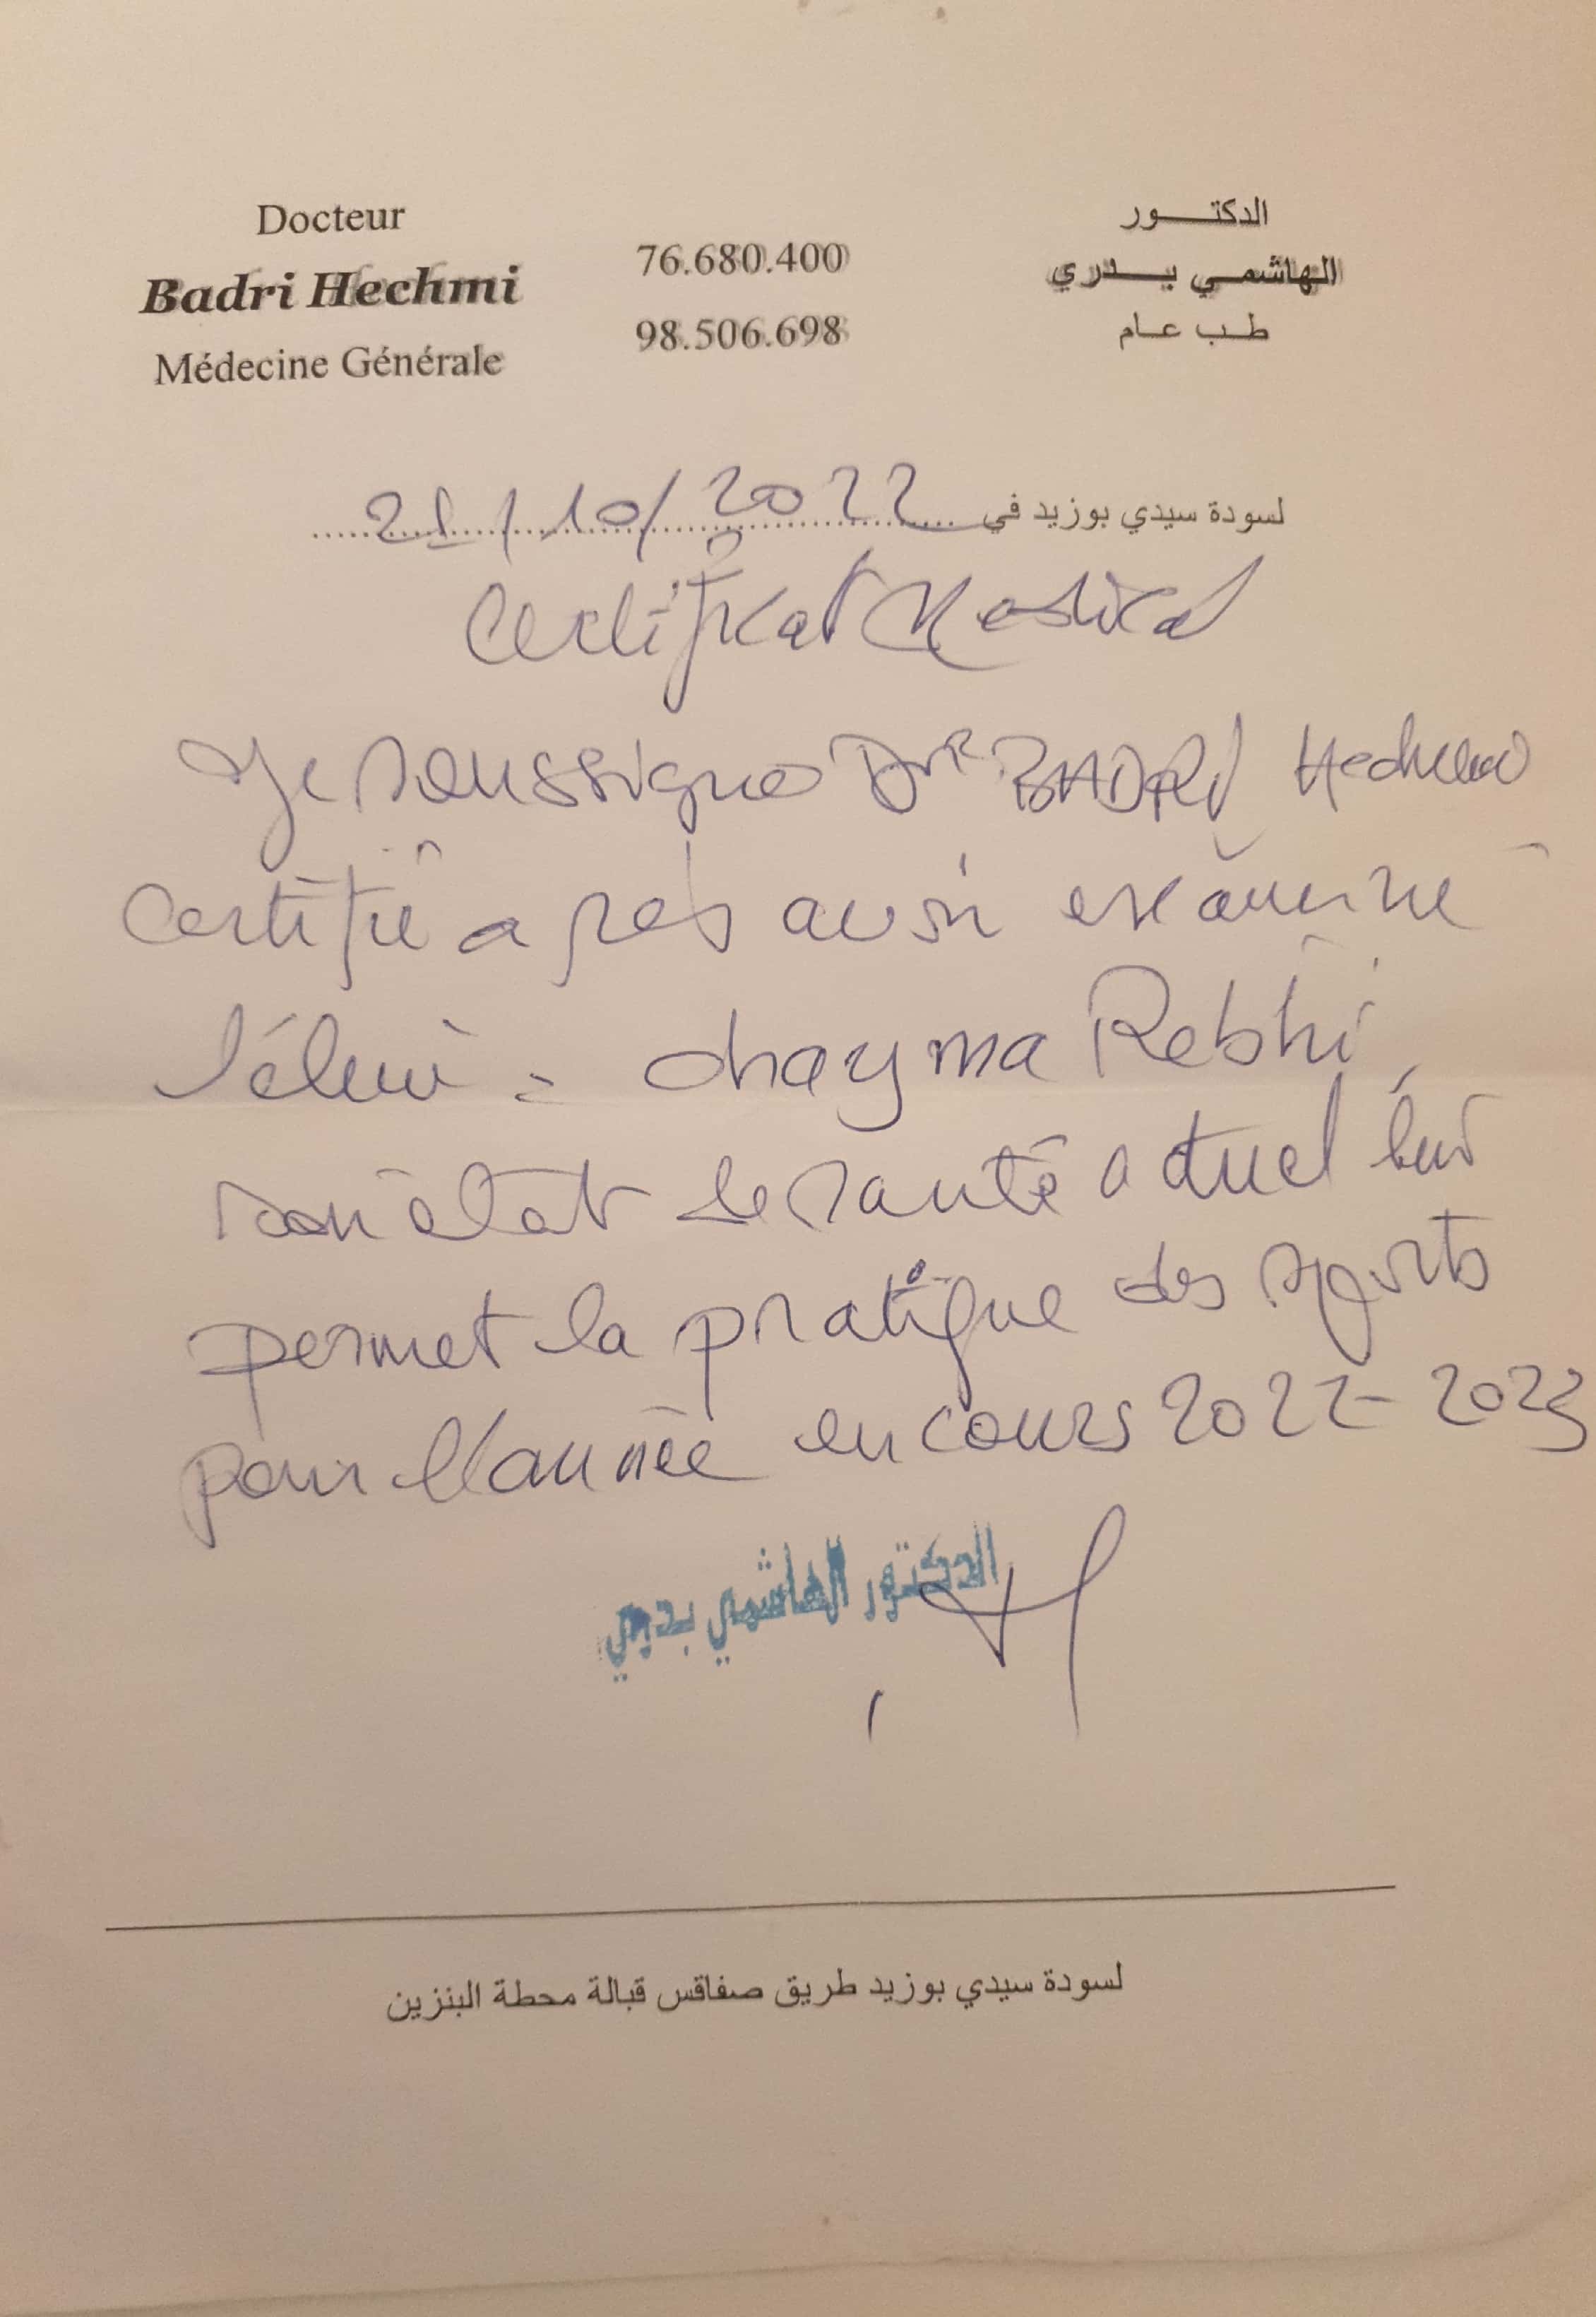 Docteur
Badri Hechmi
Médecine Générale
76.680.400
98.506.698
الدكتور
الهاشمي بدري
طب عام
لسودة سيدي بوزيد في 21/10/2022
Certificat Medical
Je soussigné Dr BADRI Hechmi
Certifie après avoir examiné
l'élève : chayma Rebhi
son état de santé actuel lui
permet la pratique des sports
pour l'année en cours 2022-2023
الدكتور الهاشمي بدري
لسودة سيدي بوزيد طريق صفاقس قبالة محطة البنزين